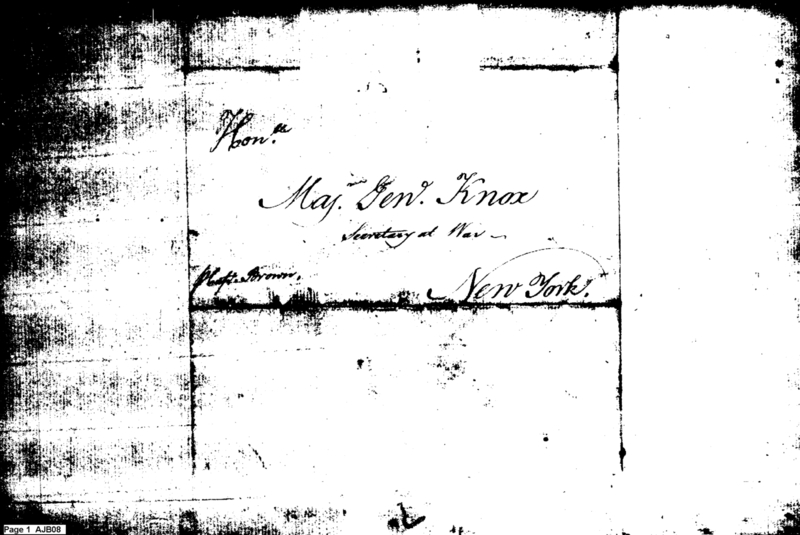 Hon.ble
Maj.r Gen.l Knox
Secretary at War
p Capt. Brown.
New York.
Page 1 AJB08